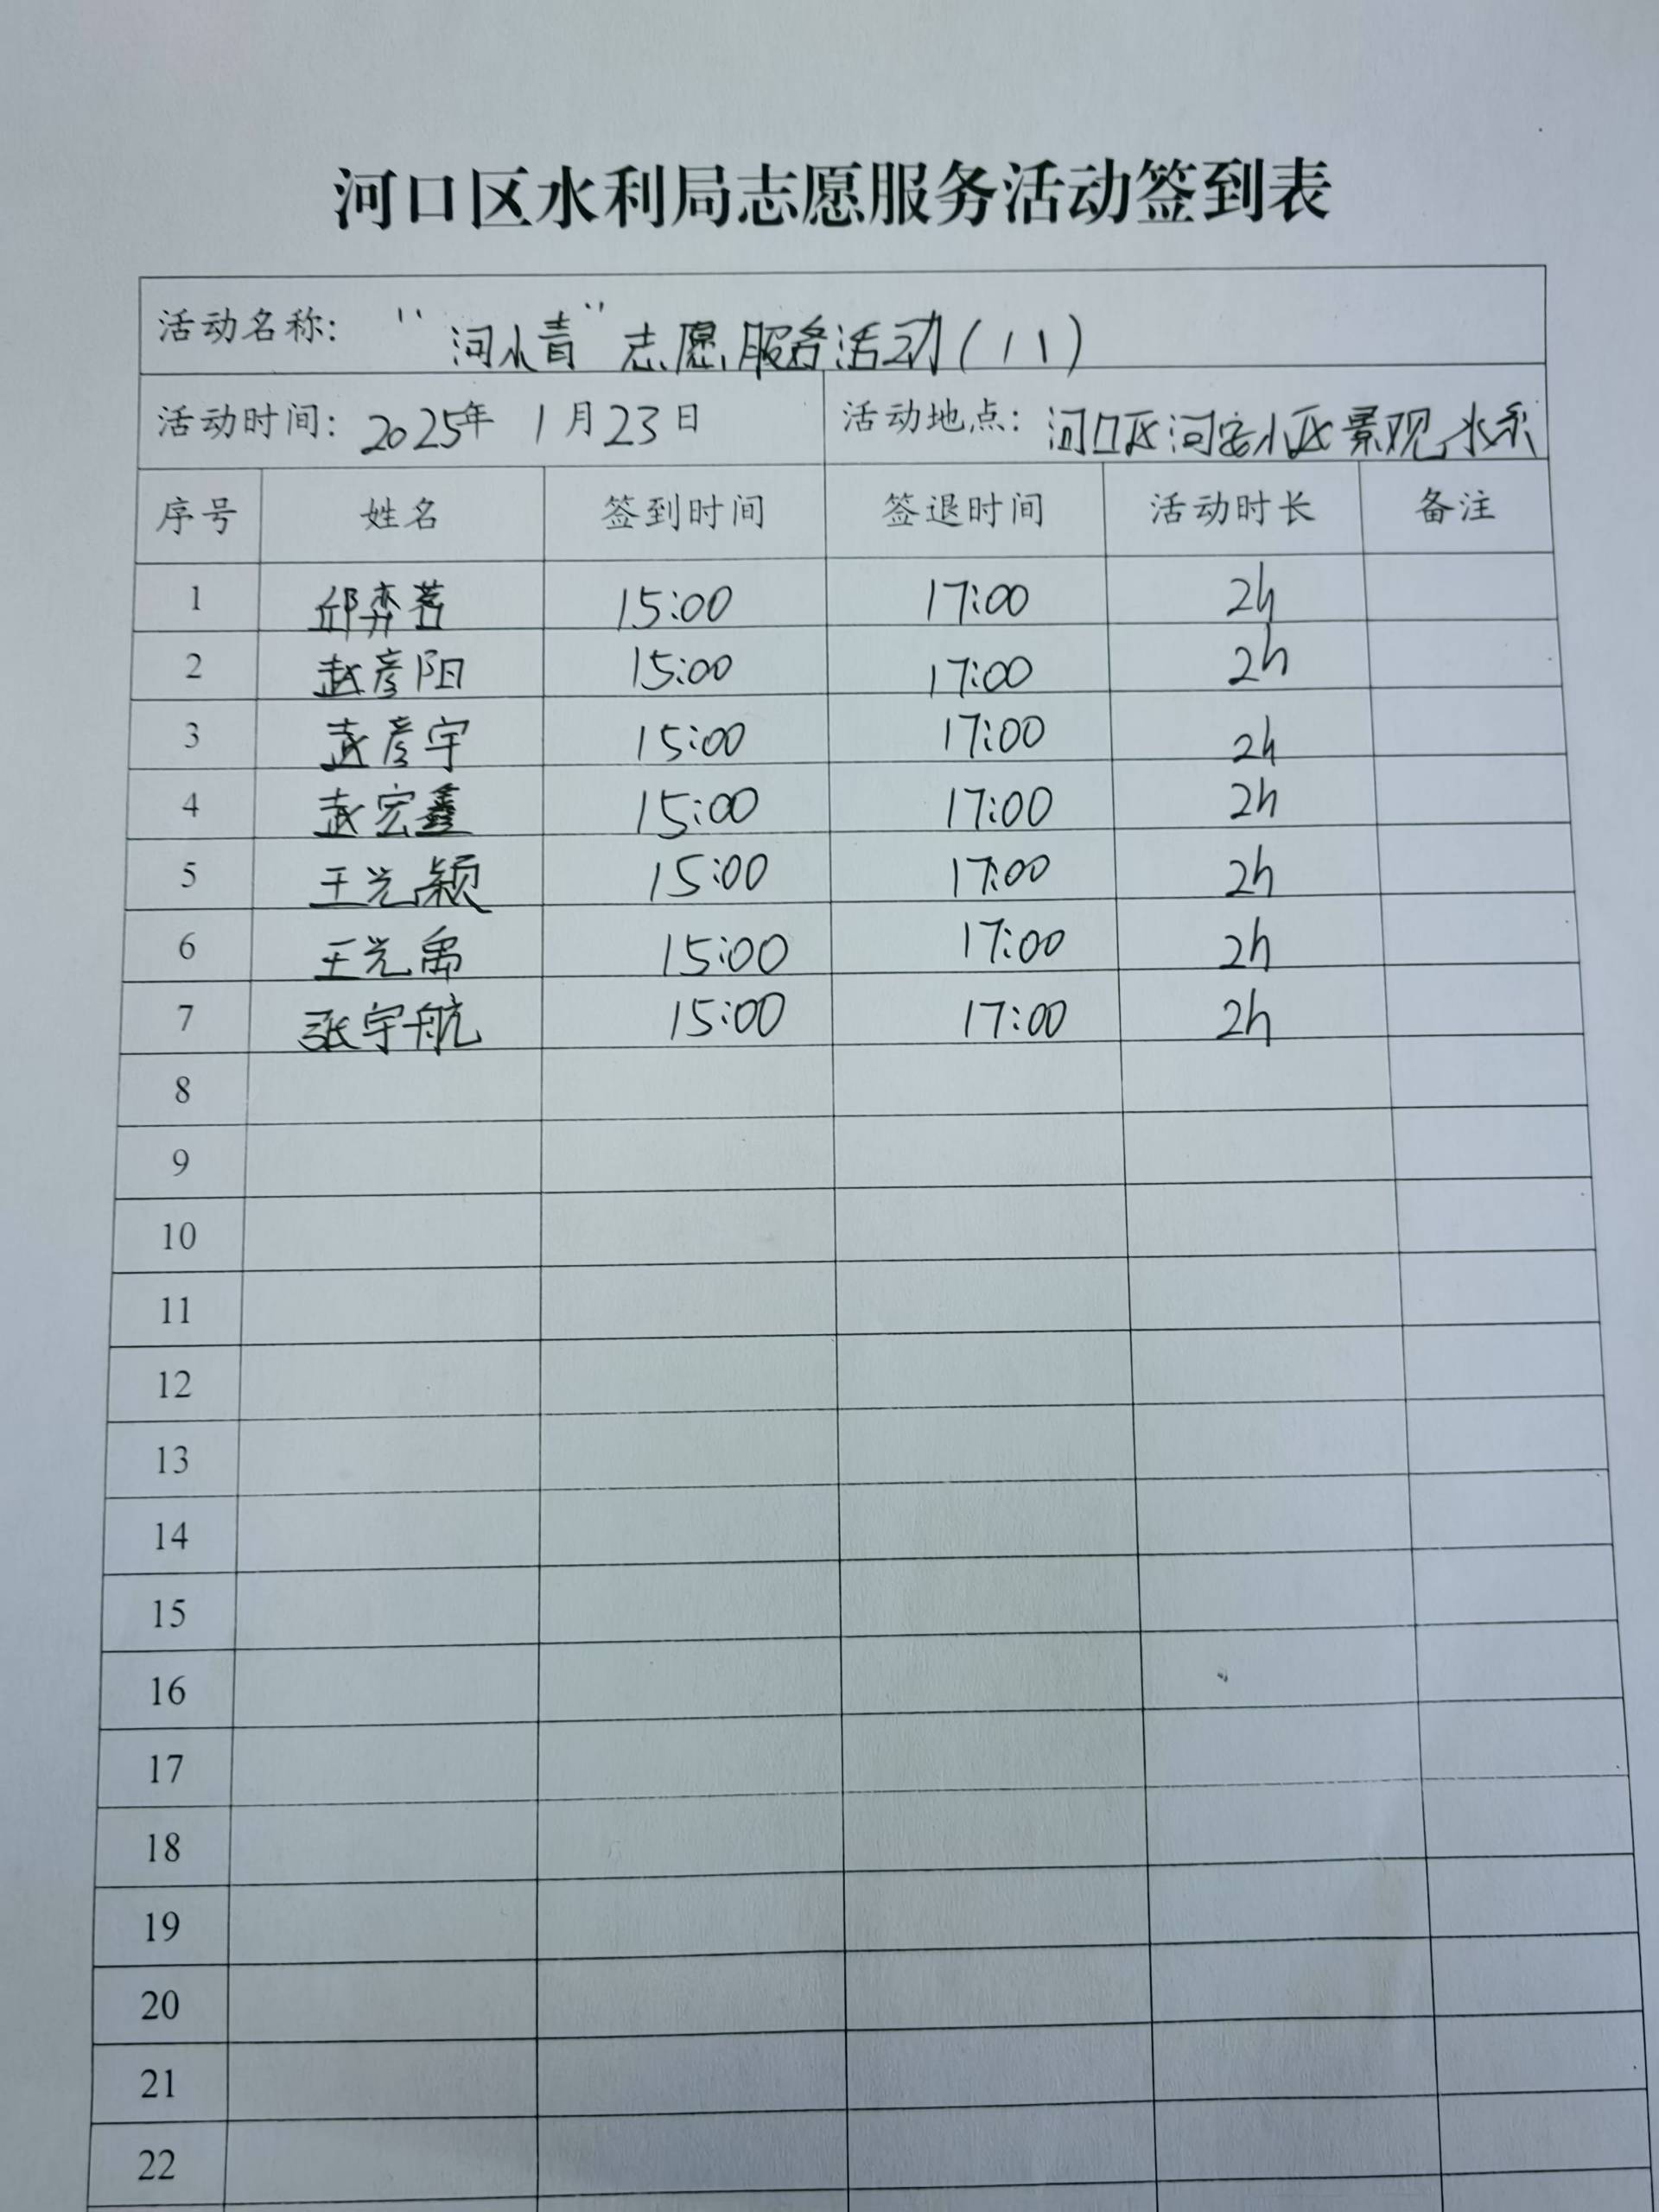 河口区水利局志愿服务活动签到表
活动名称： “河小青”志愿服务活动（八）
活动时间：2025年 1月23日 活动地点：河口区河安小区景观水系
序号 姓名 签到时间 签退时间 活动时长 备注
1 邱弈茗 15:00 17:00 2h
2 赵彦阳 15:00 17:00 2h
3 赵彦宇 15:00 17:00 2h
4 赵宏鑫 15:00 17:00 2h
5 王光颖 15:00 17:00 2h
6 王光禹 15:00 17:00 2h
7 张宇航 15:00 17:00 2h
8
9
10
11
12
13
14
15
16
17
18
19
20
21
22